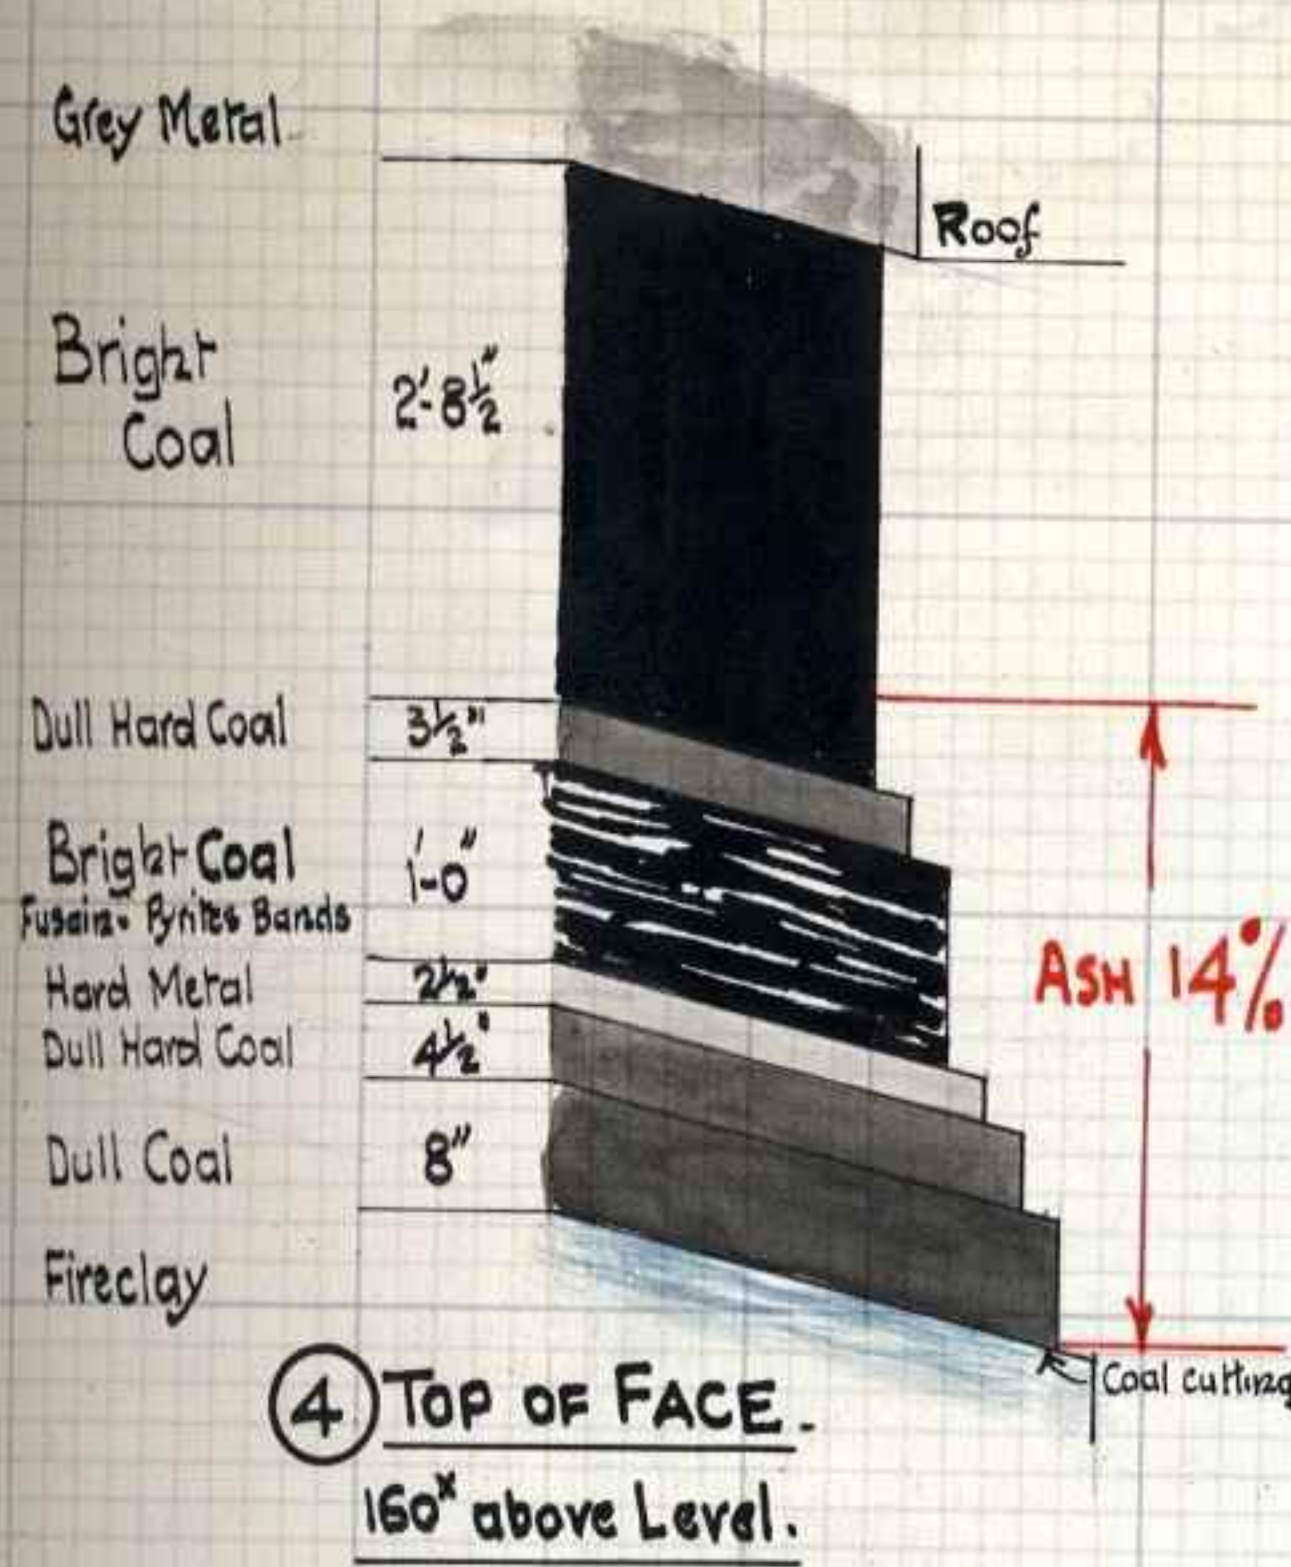 Grey Metal
Roof
Bright
Coal
2'-8½"
Dull Hard Coal
3½"
Bright Coal
1'-0"
Fusain & Pyrites Bands
Hard Metal
2½"
Dull Hard Coal
4½"
ASH 14%
Dull Coal
8"
Fireclay
Coal cutting
4 TOP OF FACE.
160ˣ above Level.